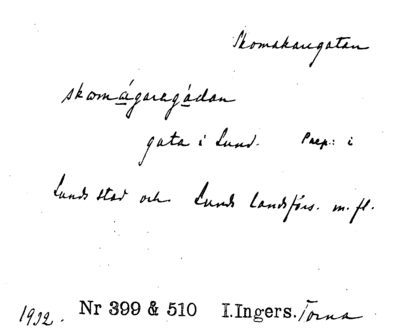 Skomakaregatan
skomágaregádan
gata i Lund. Prep.: i
Lunds stad och Lunds landsförs. m. fl.
1932. Nr 399 & 510 I.Ingers. Torna